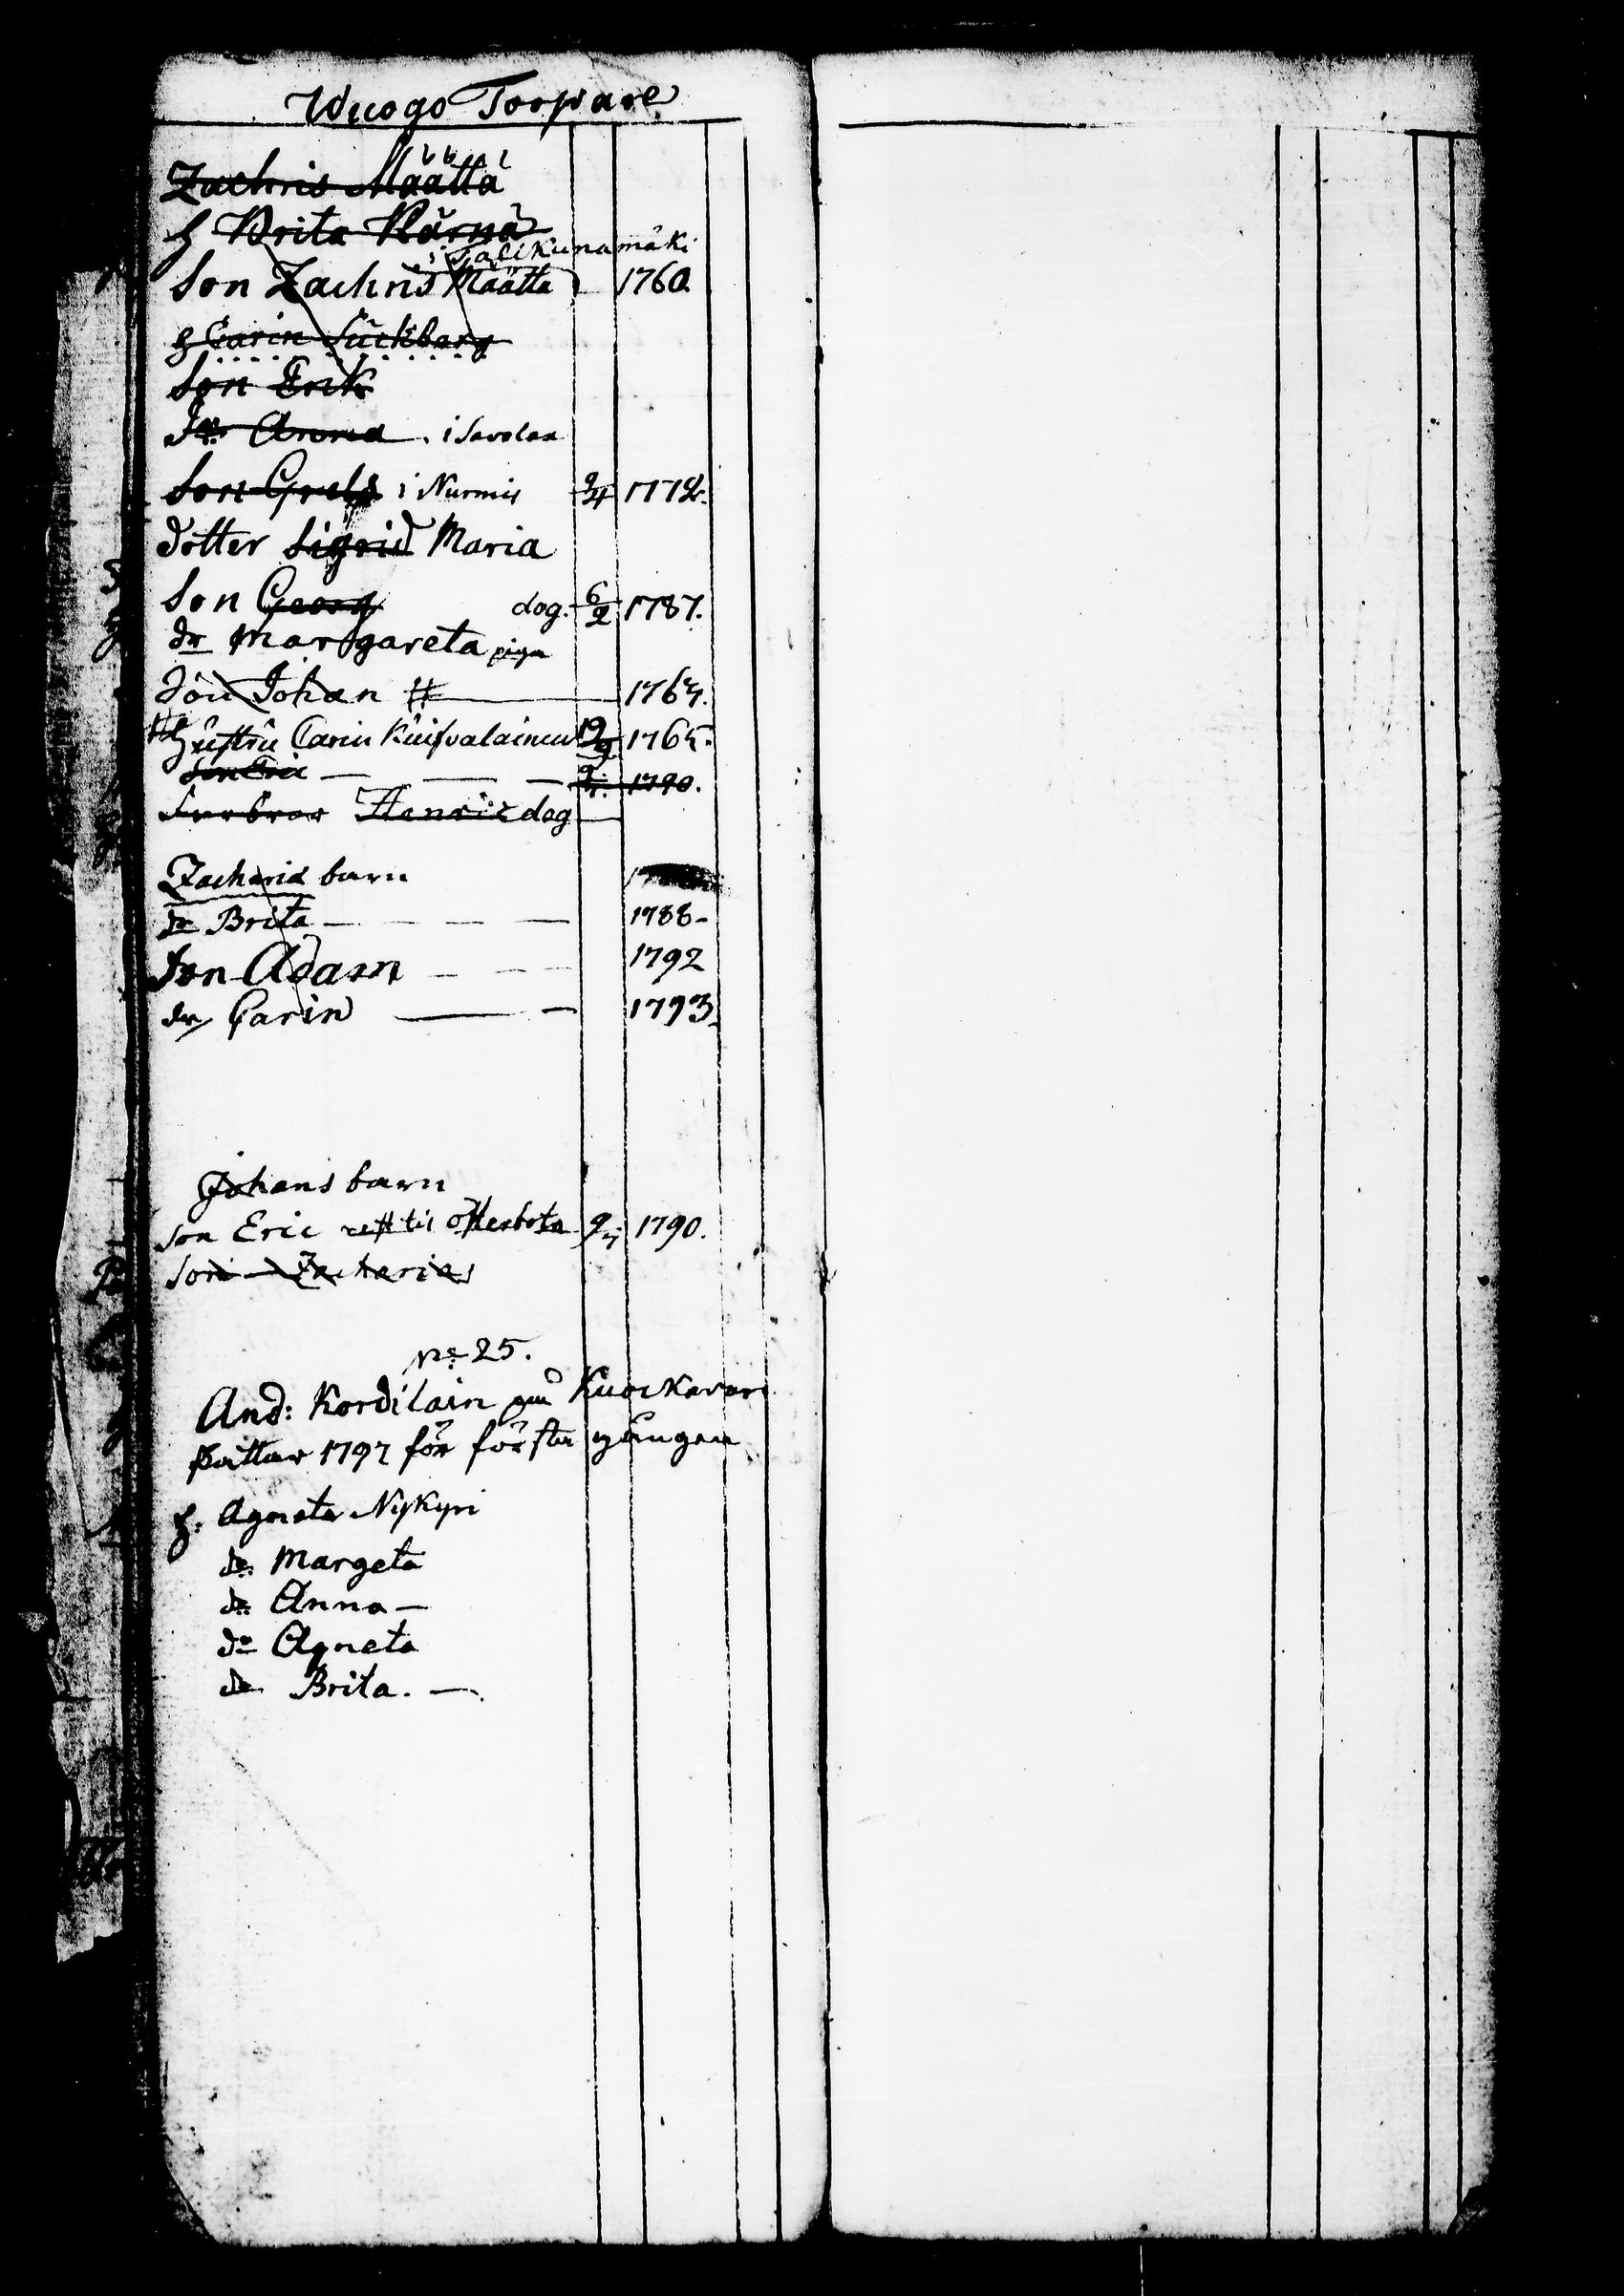 Wuogo Torpare
Zachris Määttä
h Brita Kärnä
i Jalikunamäki
Son Zachris Määtta 1760
h Carin Suckbarg
Son Erik
Dr Anna i Savolax
Son Grels i Nurmis 9/4 1772.
dotter Sigrid Maria
Son Georg dog. 6/2 1787.
dr Margareta piga
Son Johan # 1765.
# hustru Carin Kuisvalainen 19/9 1765.
Son Eric 9/5. 1790.
Henric dog
Zacharia barn
dr Brita 1788-
Son Adam 1792
dr Carin 1793.
Johans barn
son Eric rest til Österbotn 9/5 1790.
son Zacharias
No 25.
And: Kordilain på Kuockavar
1797 för första gången
h. Agneta Nykyri
dr Margeta
dr Anna -
dr Agneta
dr Brita. -